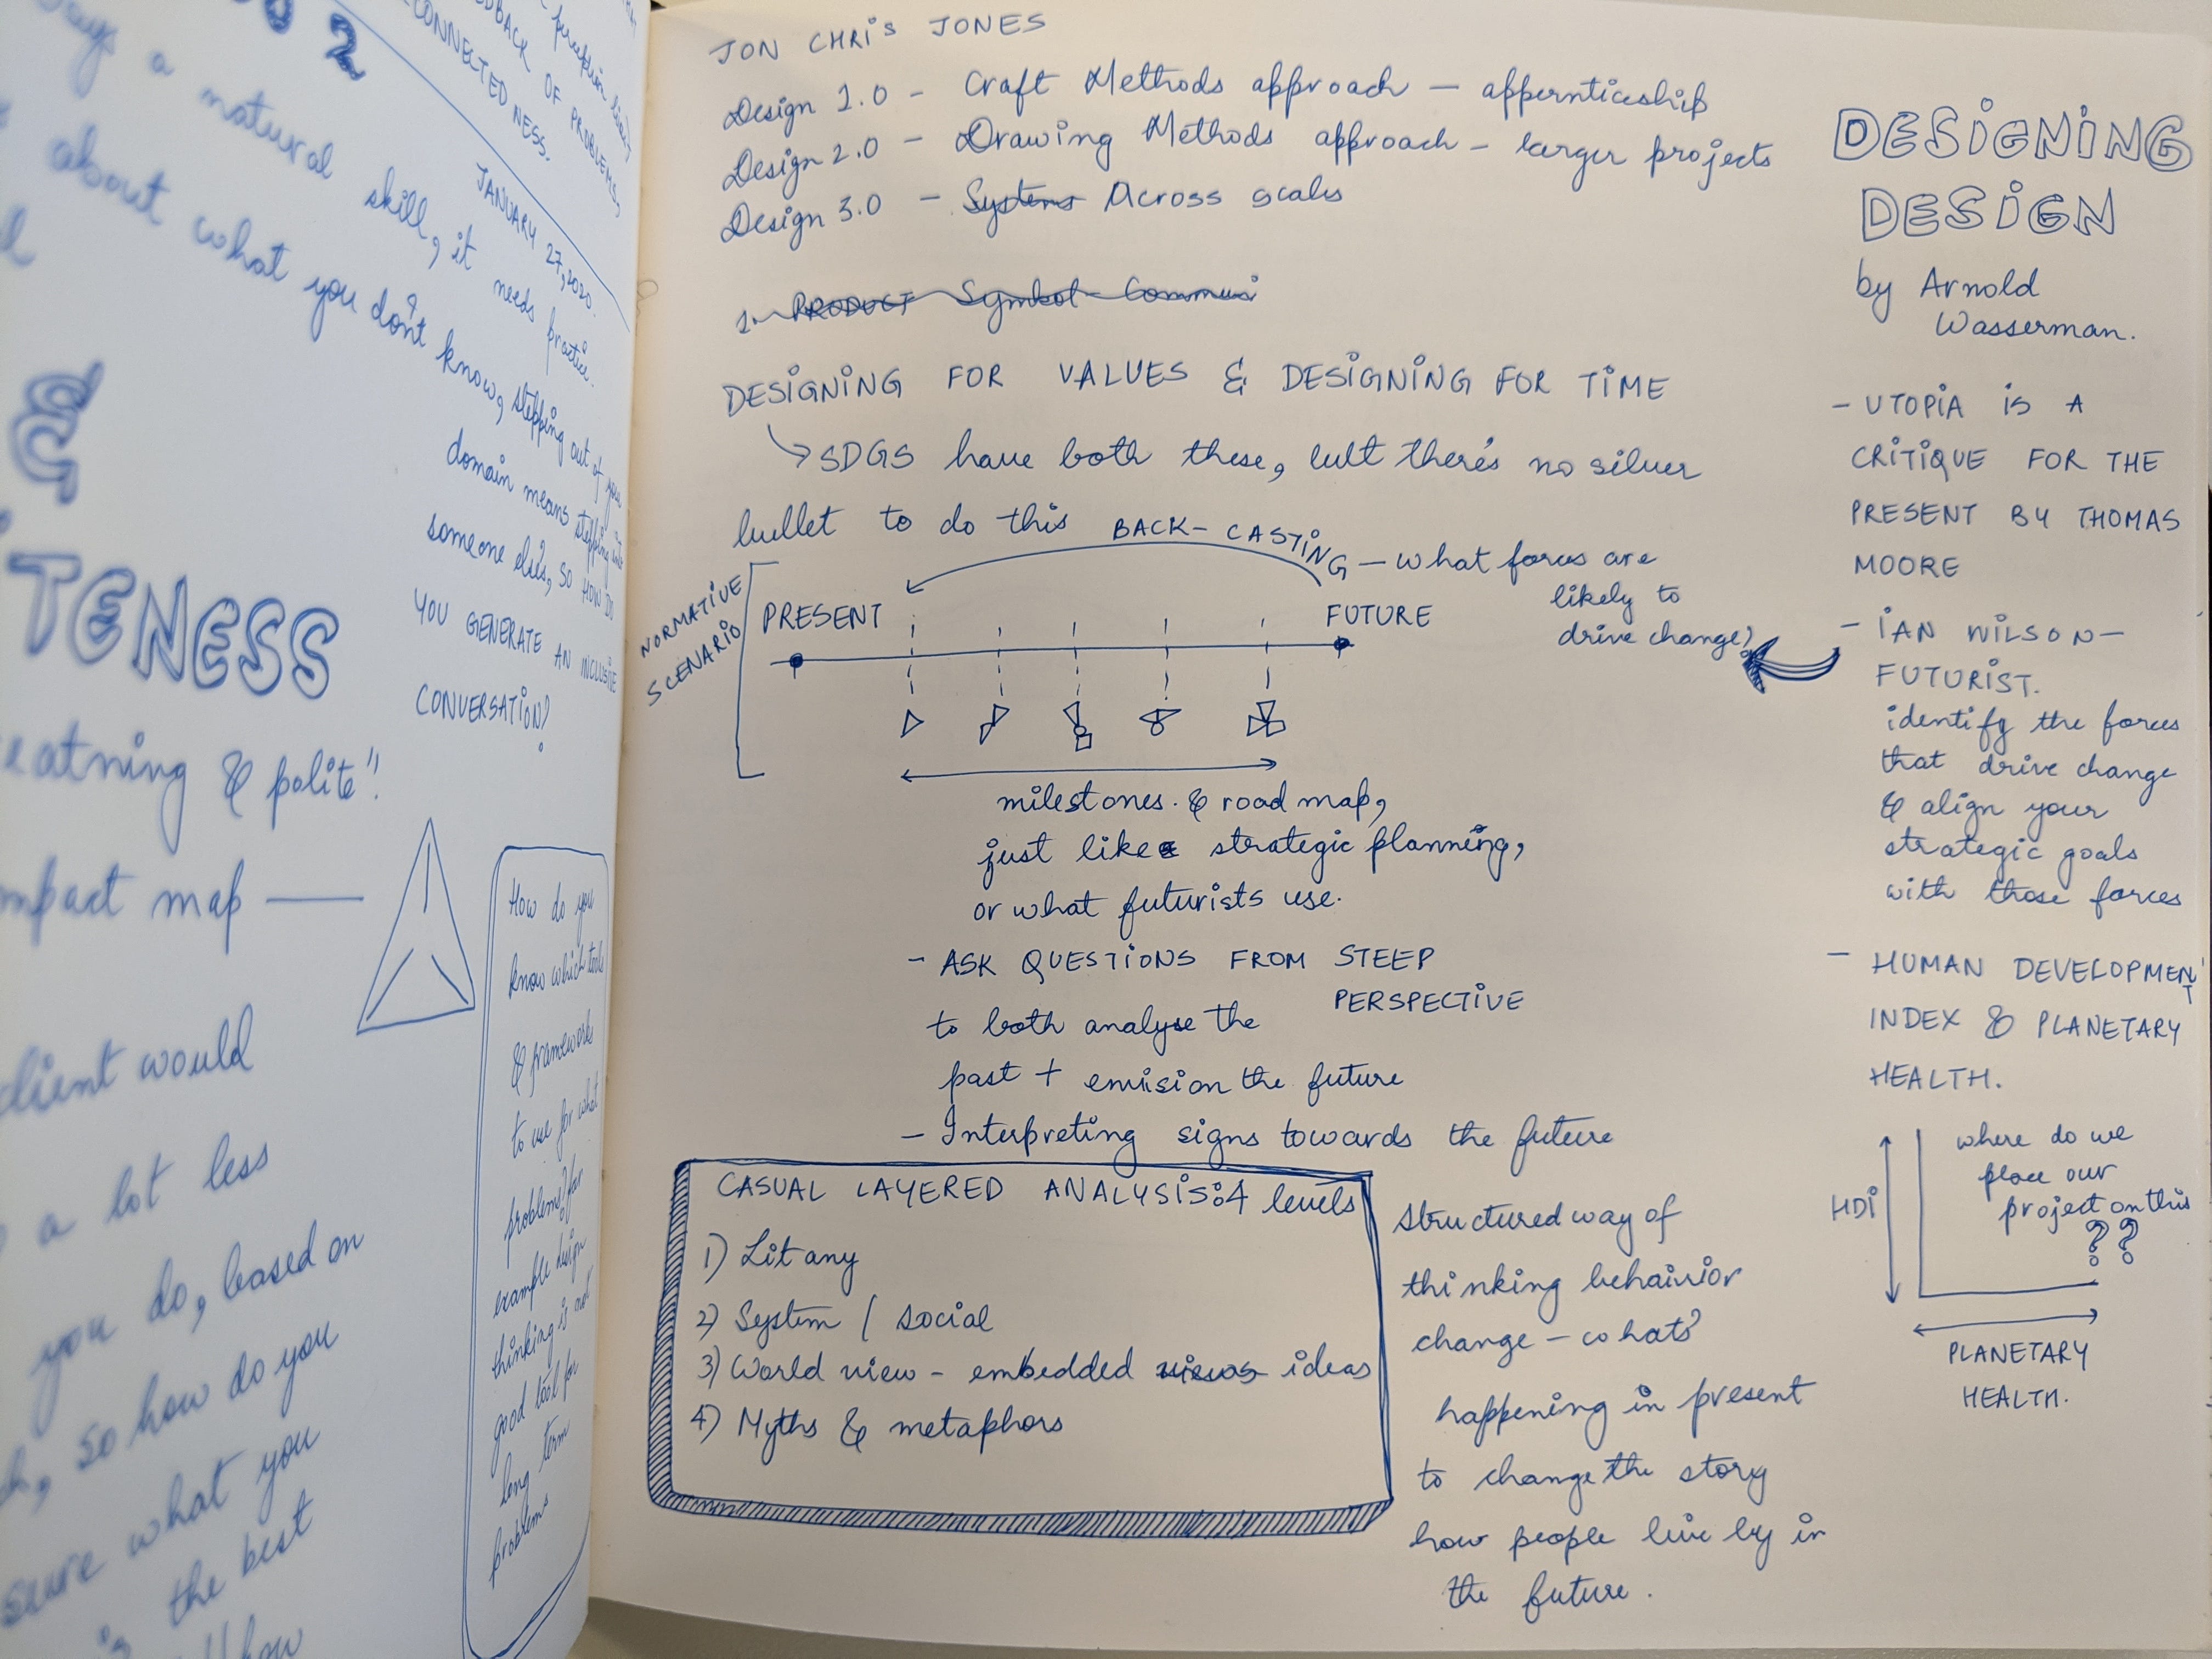 2
a natural skill, it needs practice.
about what you don't know, stepping out of your
domain means stepping into
someone else's, so HOW DO
YOU GENERATE AN INCLUSIVE
CONVERSATION?
FEEDBACK OF PROBLEMS,
CONNECTED NESS.
JANUARY 27, 2020.
&
TENESS
& polite"!
map
client would
a lot less
you do, based on
so how do you
sure what you
the best
How do you
know which tools
& frameworks
to use for what
problems? for
example design
thinking is not
good tool for
long term
problems
JON CHRIS JONES
Design 1.0 - Craft Methods approach — apprenticeship
Design 2.0 - Drawing Methods approach - larger projects
Design 3.0 - Systems Across scales
1. PRODUCT Symbol Communi
DESIGNING FOR VALUES & DESIGNING FOR TIME
SDGS have both these, but there's no silver
bullet to do this
BACK-CASTING - what forces are
likely to
drive change?
NORMATIVE
SCENARIO
PRESENT
FUTURE
milestones. & road map,
just like strategic planning,
or what futurists use.
- ASK QUESTIONS FROM STEEP
PERSPECTIVE
to both analyse the
past + envision the future
- Interpreting signs towards the future
CASUAL LAYERED ANALYSIS: 4 levels
1) Litany
2) System / social
3) World view - embedded views ideas
4) Myths & metaphors
structured way of
thinking behaivior
change - whats
happening in present
to change the story
how people live by in
the future.
DESIGNING
DESIGN
by Arnold
Wasserman.
- UTOPIA IS A
CRITIQUE FOR THE
PRESENT BY THOMAS
MOORE
- IAN WILSON-
FUTURIST.
identify the forces
that drive change
& align your
strategic goals
with those forces
- HUMAN DEVELOPMENT
INDEX & PLANETARY
HEALTH.
where do we
place our
project on this
??
HDI
PLANETARY
HEALTH.